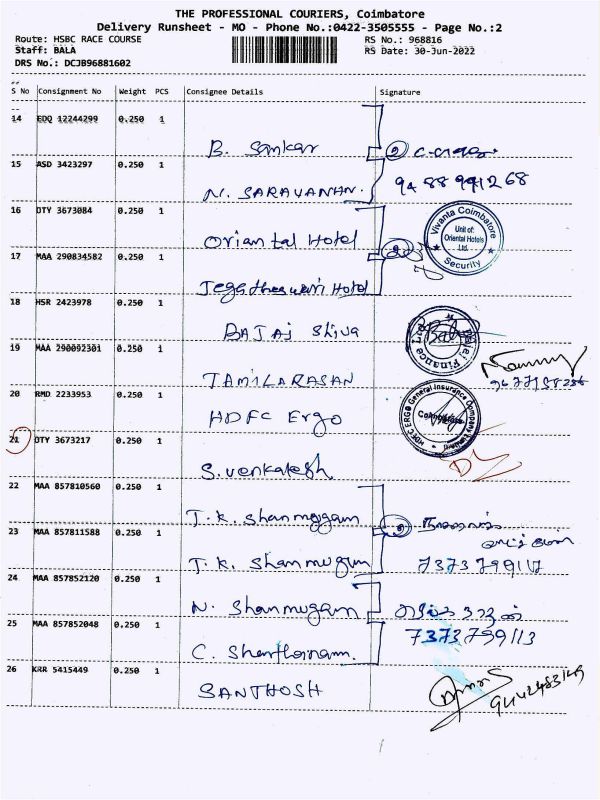 THE PROFESSIONAL COURIERS, Coimbatore
Delivery Runsheet - MO - Phone No.:0422-3505555 - Page No.:2
Route: HSBC RACE COURSE RS No.: 968816
Staff: BALA RS Date: 30-Jun-2022
DRS No.: DCJB96881602
S No Consignment No Weight PCS Consignee Details Signature
14 EDQ 12244299 0.250 1
B. Sankar
15 ASD 3423297 0.250 1
N. SARAVANAN.
16 OTY 3673084 0.250 1
Oriental Hotel
Vivanta Coimbatore
Unit of:
Oriental Hotels
Ltd.
Security
17 MAA 290834582 0.250 1
Jegatheswari Hotel
18 HSR 2423978 0.250 1
BAJAJ Shiva
Bajaj Finance Ltd
19 MAA 290092301 0.250 1
TAMILARASAN
20 RMD 2233953 0.250 1
HDFC Ergo
HDFC ERGO General Insurance Company
Coimbatore
21 OTY 3673217 0.250 1
S. Venkatesh
22 MAA 857810560 0.250 1
T. K. Shanmugam
23 MAA 857811588 0.250 1
T. K. Shanmugam
24 MAA 857852120 0.250 1
N. Shanmugam
25 MAA 857852048 0.250 1
7373799113
C. Shantharam.
26 KRR 5415449 0.250 1
SANTHOSH